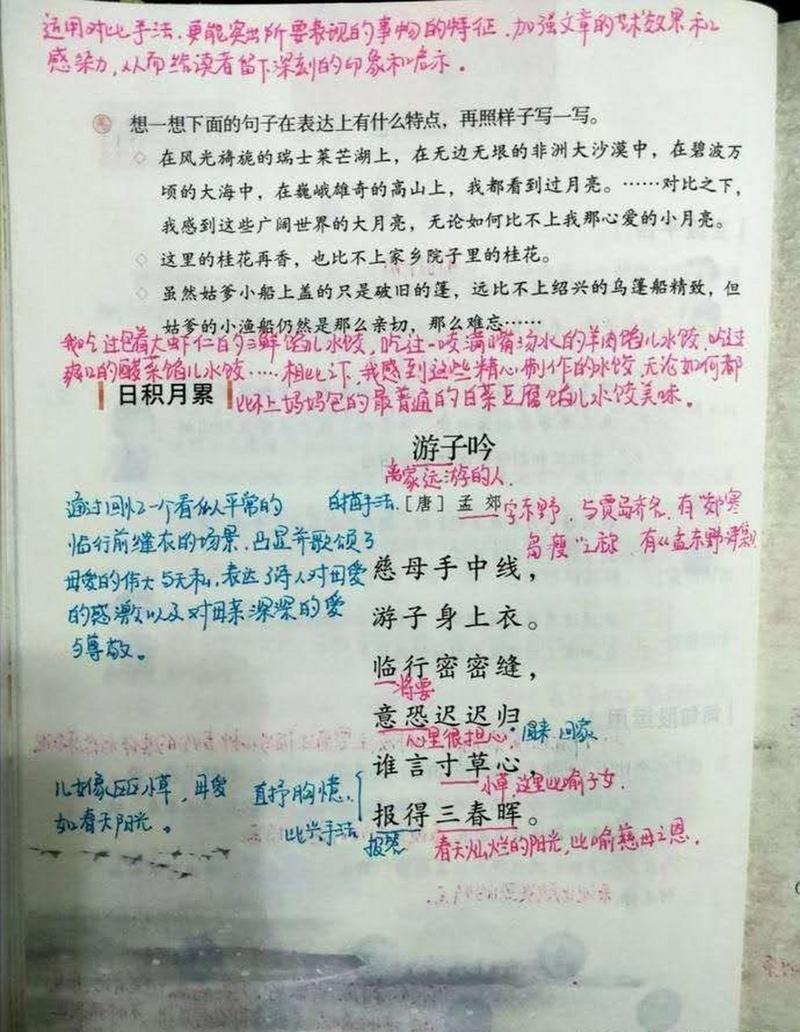 运用对比手法,更能突出所要表现的事物的特征,加强文章的艺术效果和
感染力,从而给读者留下深刻的印象和启示。
想一想下面的句子在表达上有什么特点,再照样子写一写。
◇ 在风光旖旎的瑞士莱芒湖上,在无边无垠的非洲大沙漠中,在碧波万
顷的大海中,在巍峨雄奇的高山上,我都看到过月亮。……对比之下,
我感到这些广阔世界的大月亮,无论如何比不上我那心爱的小月亮。
◇ 这里的桂花再香,也比不上家乡院子里的桂花。
◇ 虽然姑爹小船上盖的只是破旧的篷,远比不上绍兴的乌篷船精致,但
姑爹的小渔船仍然是那么亲切,那么难忘……
我吃过包着大虾仁的三鲜馅儿水饺,吃过一咬满嘴汤水的羊肉馅儿水饺,吃过
爽口的酸菜馅儿水饺……相比之下,我感到这些精心制作的水饺,无论如何都
比不上妈妈包的最普通的白菜豆腐馅儿水饺美味。
日积月累
游子吟
离家远游的人.
白描手法.[唐] 孟 郊 字东野,与贾岛齐名,有“郊寒
岛瘦”之称 有《孟东野诗集》
通过回忆一个看似平常的
临行前缝衣的场景,凸显并歌颂了
母爱的伟大与无私,表达了诗人对母爱
的感激以及对母亲深深的爱
与尊敬。
慈母手中线,
游子身上衣。
临行密密缝,
将要
意恐迟迟归。
心里很担心. 回来 回家
谁言寸草心,
小草,这里比喻子女.
报得三春晖。
报答 春天灿烂的阳光,比喻慈母之恩.
直抒胸臆.
比兴手法
儿女像区区小草,母爱
如春天阳光。